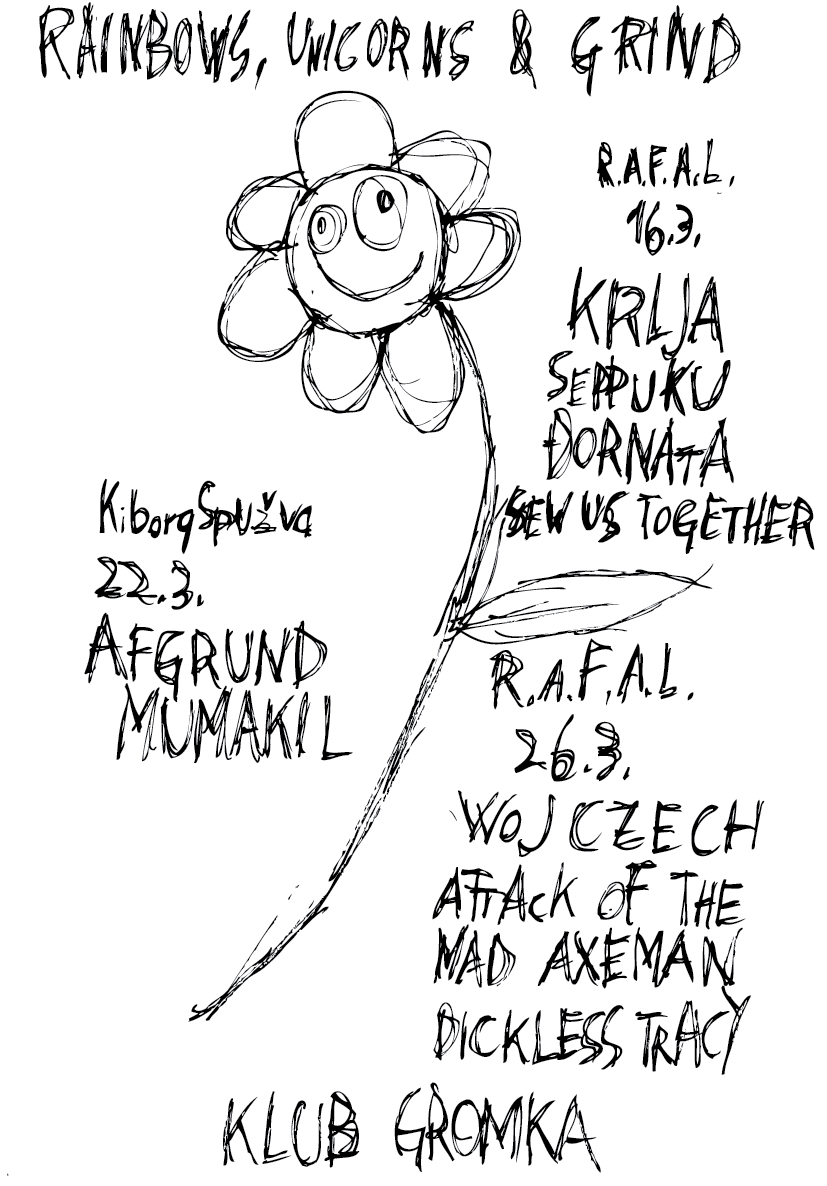 RAINBOWS, UNICORNS & GRIND
R.A.F.A.L.
16.3.
KRLJA
SEPPUKU
ĐORNATA
SEW US TOGETHER
Kiborg Spužva
22.3.
AFGRUND
MUMAKIL
R.A.F.A.L.
26.3.
WOJCZECH
ATTACK OF THE
MAD AXEMAN
DICKLESS TRACY
KLUB GROMKA